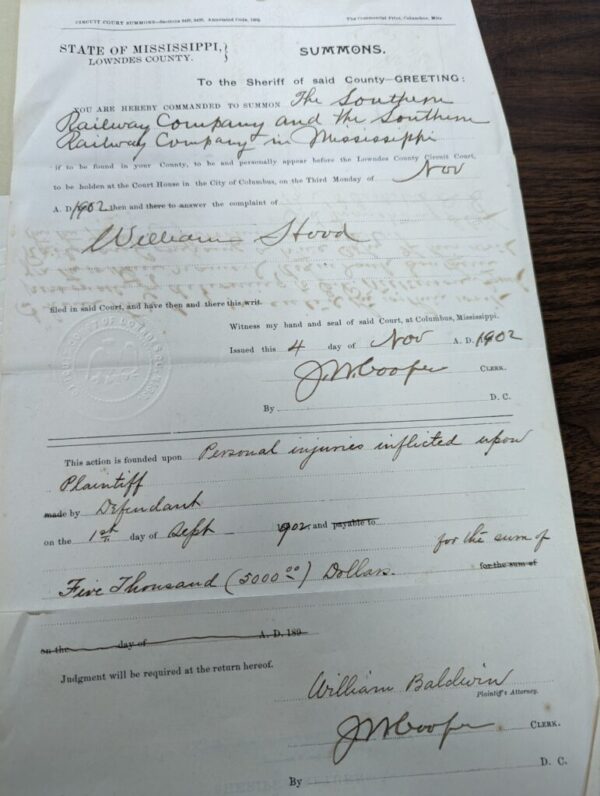 CIRCUIT COURT SUMMONS—Sections Annotated Code, 1892. The Commercial Print, Columbus, Miss
STATE OF MISSISSIPPI,
LOWNDES COUNTY.
SUMMONS.
To the Sheriff of said County—GREETING:
YOU ARE HEREBY COMMANDED TO SUMMON The Southern
Railway Company and the Southern
Railway Company in Mississippi
if to be found in your County, to be and personally appear before the Lowndes County Circuit Court,
to be holden at the Court House in the City of Columbus, on the Third Monday of Nov
A. D. 1902 then and there to answer the complaint of
William Hood
filed in said Court, and have then and there this writ.
Witness my hand and seal of said Court, at Columbus, Mississippi.
Issued this 4 day of Nov A. D. 1902
J. W. Cooper CLERK.
By D. C.
This action is founded upon Personal injuries inflicted upon
Plaintiff
made by Defendant
on the 1st day of Sept 1902, and payable to
for the sum of
Five Thousand (5000.00) Dollars. for the sum of
on the day of A. D. 189
Judgment will be required at the return hereof.
William Baldwin
Plaintiff's Attorney.
J. W. Cooper CLERK.
By D. C.